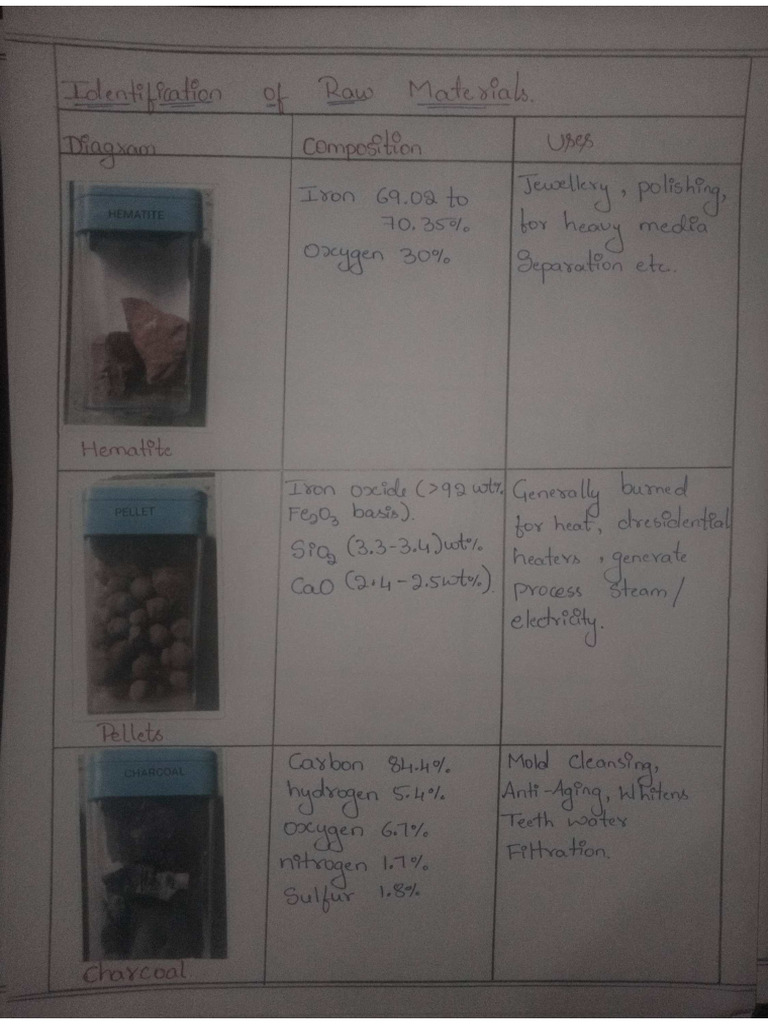 Identification of Raw Materials.
Diagram
Composition
Uses
HEMATITE
Hematite
Iron 69.02 to
70.35%
Oxygen 30%
Jewellery, polishing,
for heavy media
Separation etc.
PELLET
Pellets
Iron oxide (>92 wt%
Fe2O3 basis).
SiO2 (3.3-3.4)wt%
CaO (2.4-2.5wt%).
Generally burned
for heat, chresidential
heaters, generate
process steam/
electricity.
CHARCOAL
Charcoal
Carbon 84.4%
hydrogen 5.4%
oxygen 6.7%
nitrogen 1.7%
Sulfur 1.8%
Mold Cleansing,
Anti-Aging, Whitens
Teeth water
Filtration.